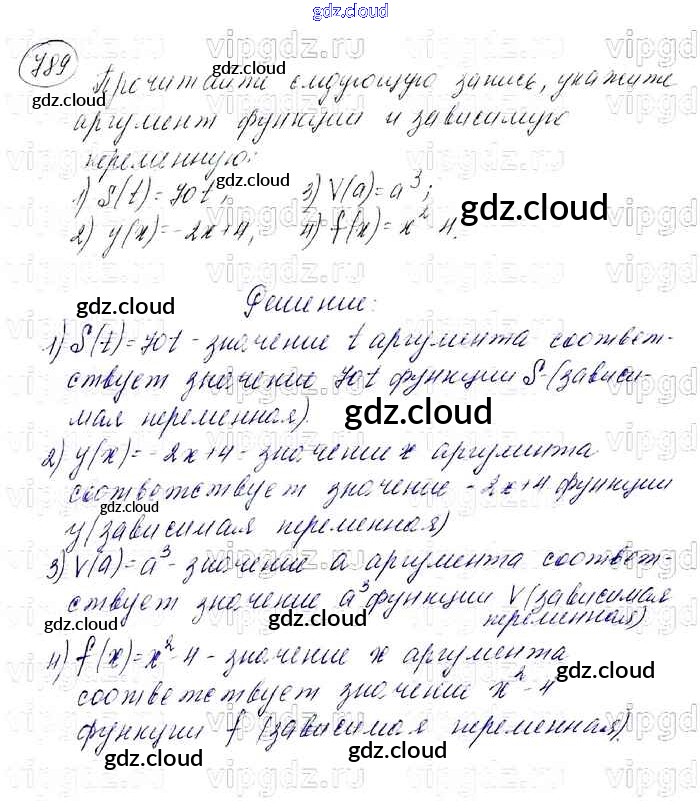 gdz.cloud
789
Прочитайте следующую запись, укажите
аргумент функции и зависимую
переменную:
1) S(t)=70t; 3) V(a)=a³;
2) y(x)=-2x+4; 4) f(x)=x²-4.
Решение:
1) S(t)=70t - значение t аргумента соответ-
ствует значение 70t функции S-(зависи-
мая переменная).
2) y(x)=-2x+4 - значению x аргумента
соответствует значение -2x+4 функции
y(зависимая переменная)
3) V(a)=a³- значению a аргумента соответ-
ствует значение a³ функции V(зависимая
переменная)
4) f(x)=x²-4 - значение x аргумента
соответствует значение x²-4
функции f (зависимая переменная).